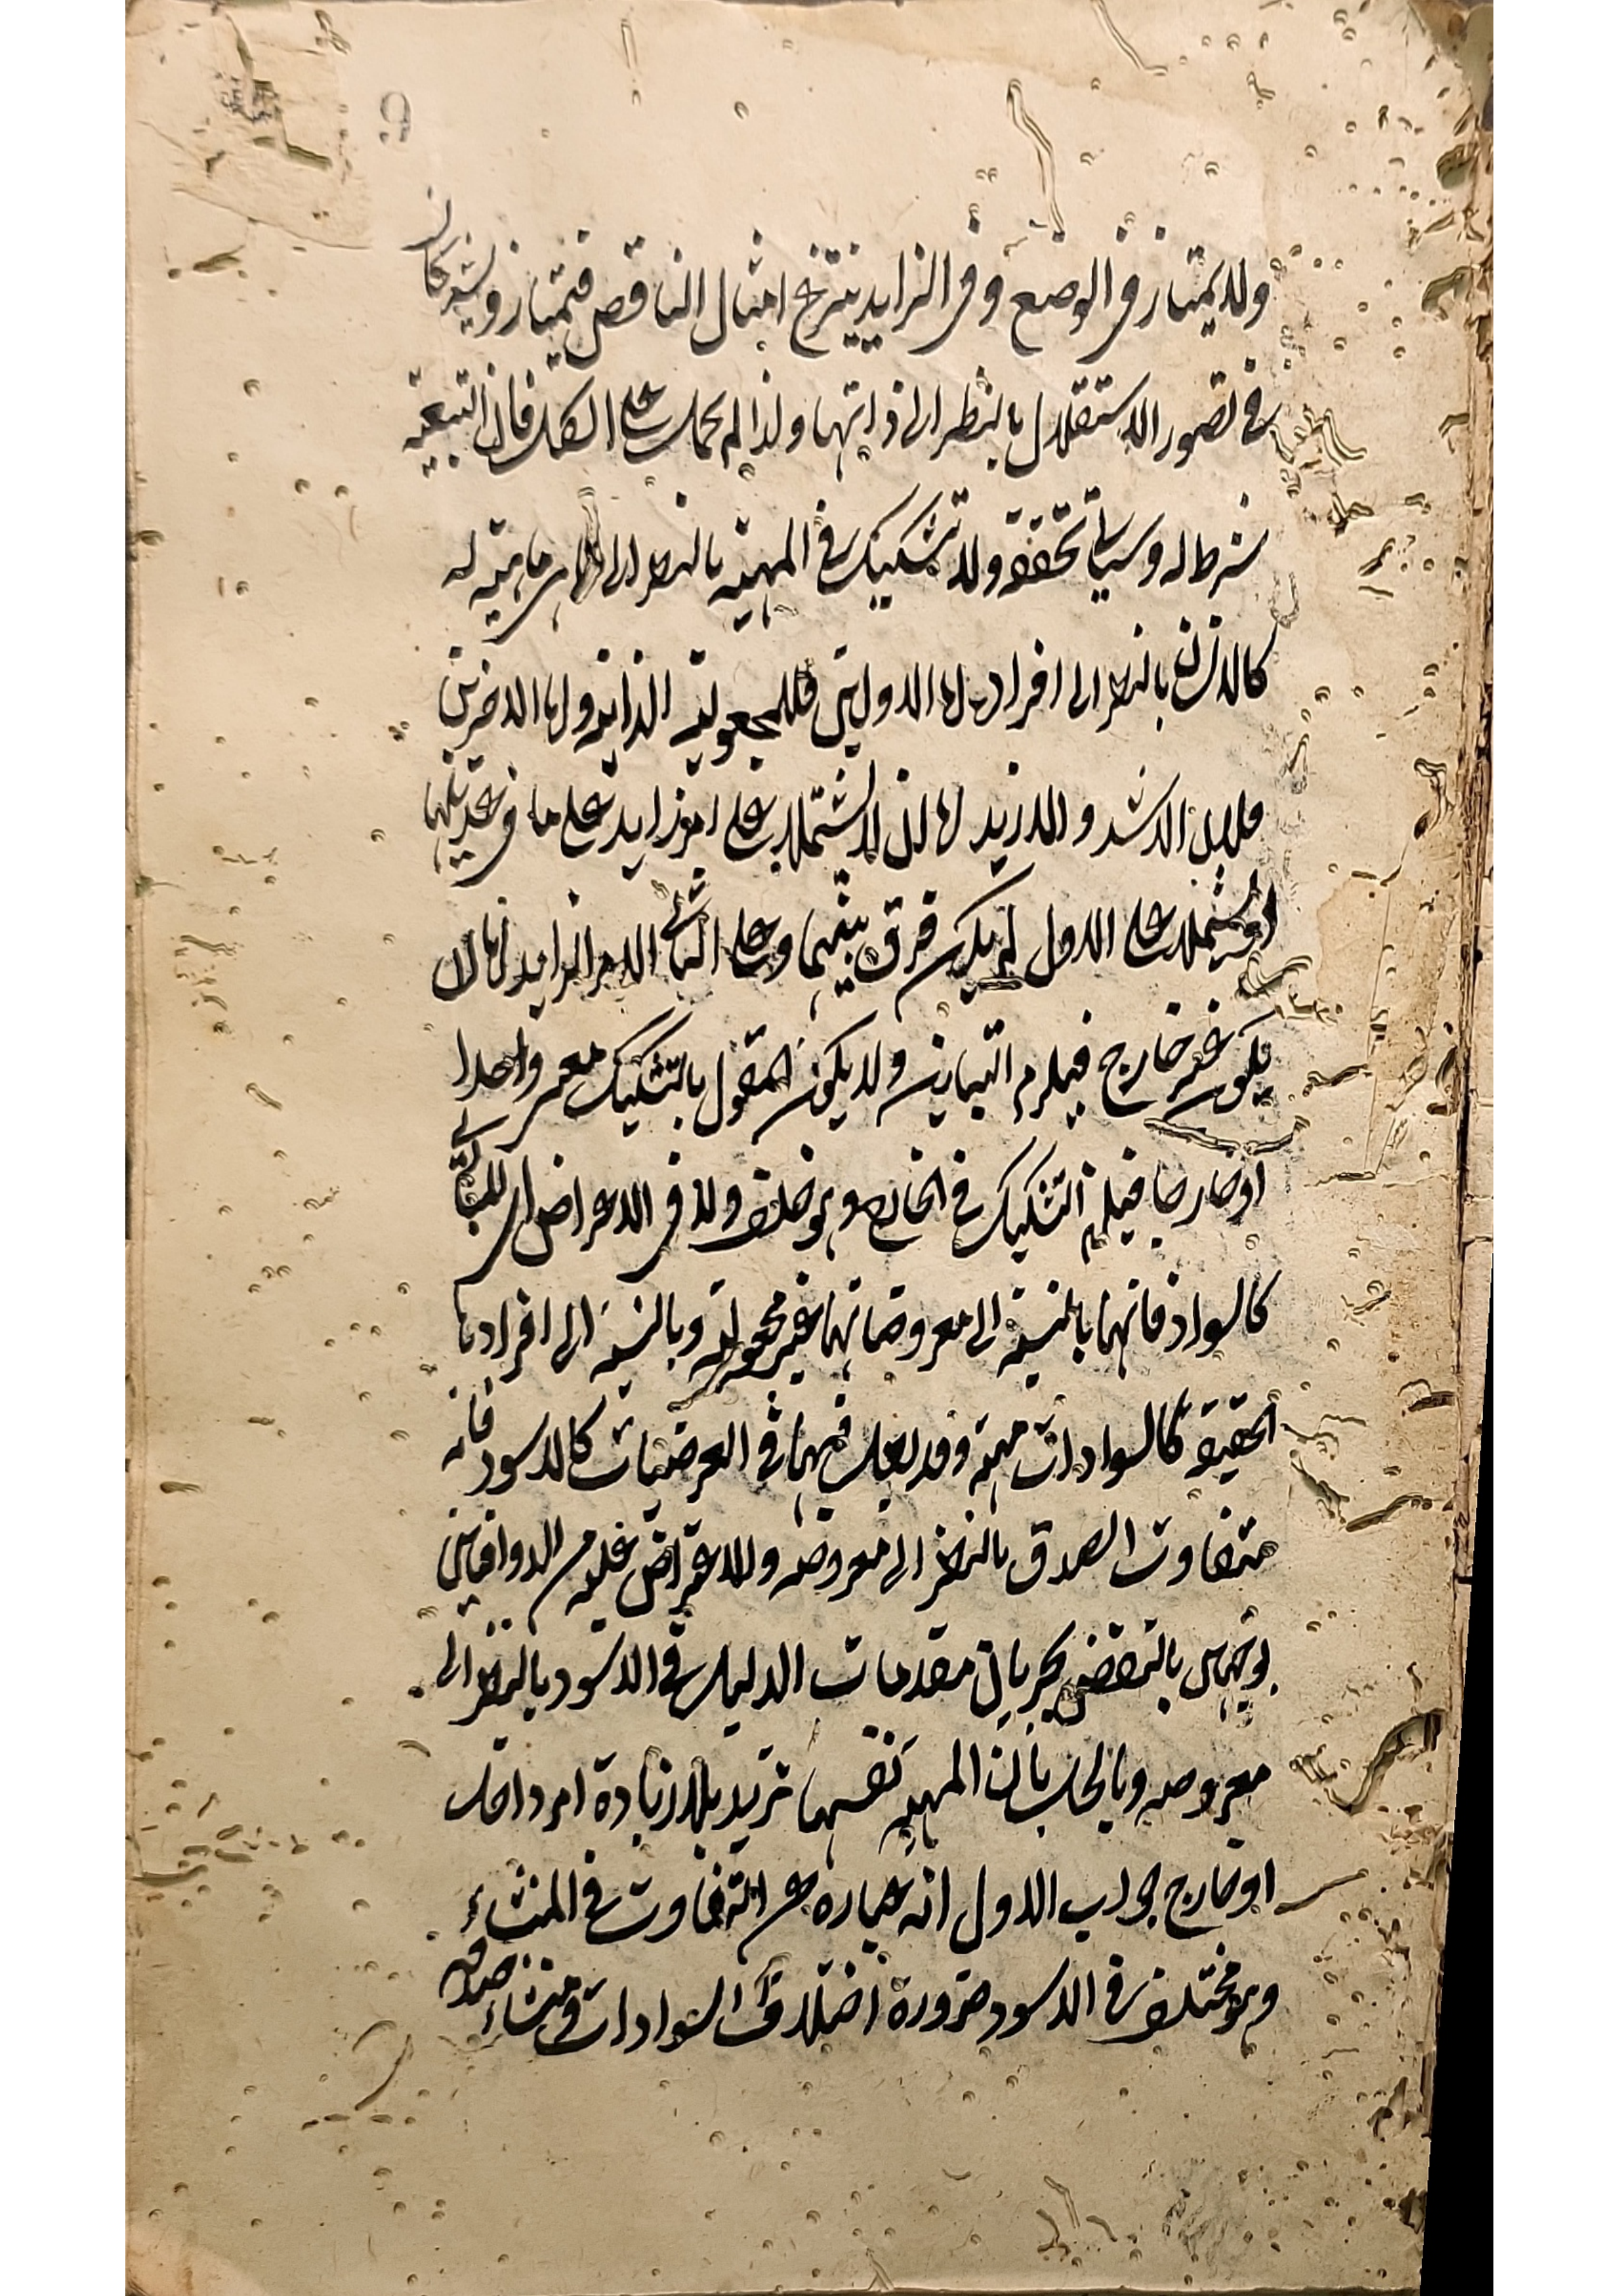 9
ولا يمتاز في الوضع وفي الزايد ينتزع امثال الناقص فتمتاز ويشتركان
في تصور الاستقلال بالنظر الى ذاتها ولذا لم يحمل على الكل فان التبعية
شرط له وسيأتي تحققه ولا تشكيك في المهية بالنظر الى ما هي ماهية له
كالانسان بالنظر الى افراده اما الاوليان فللمجعولية الذاتية واما الاخريان
فلان الاشد والازيد اما ان لا يشتملا على امر زايد على ما في عديلهما
او يشتملا على الاول لم يكن فرق بينهما وعلى الثاني الامر الزايد اما ان
يكون غير خارج فيلزم التباين ولا يكون المقول بالتشكيك معنى واحدا
او خارجا فيلزم التشكيك في الخارج وهو خلف ولا في الاعراض اي المبادي
كالسواد فانها بالنسبة الى معروضاتها غير محمولة وبالنسبة الى افرادها
الحقيقية كالسوادات مهية وقد يعلم فيها في العرضيات كالاسود فانه
متفاوت الصدق بالنظر الى معروضه والاعتراض عليه من الاوليين
بوجهين بالنقض بجريان مقدمات الدليل في الاسود بالنظر الى
معروضه وبالحل بان المهية نفسها تزيد بلا زيادة امر داخل
او خارج جواب الاول انه عبارة عن التفاوت في المنشاء
وهو مختلف في الاسود ضرورة اختلاف السوادات في منشاء صدقه